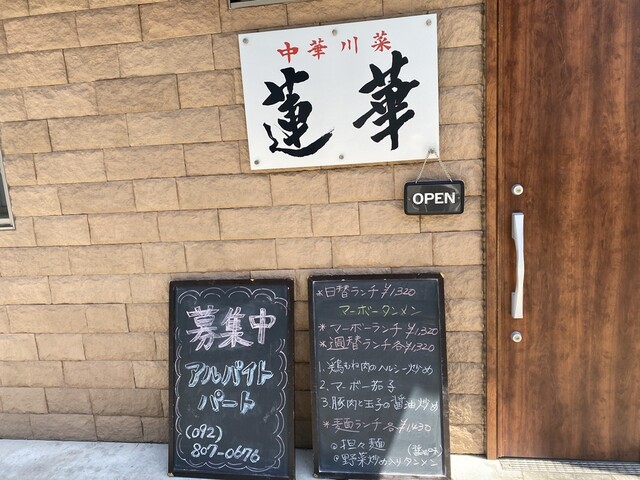 中華川菜
蓮華
OPEN
募集中
アルバイト
パート
(092)
807-0676
*日替ランチ ¥1,320
マーボータンメン
*マーボーランチ ¥1,320
*週替ランチ各¥1,320
1.鶏むね肉のヘルシー炒め
2.マーボー茄子
3.豚肉と玉子の醤油炒め
*麦面ランチ各¥1,430
@担々麺
@野菜炒め入りタンメン